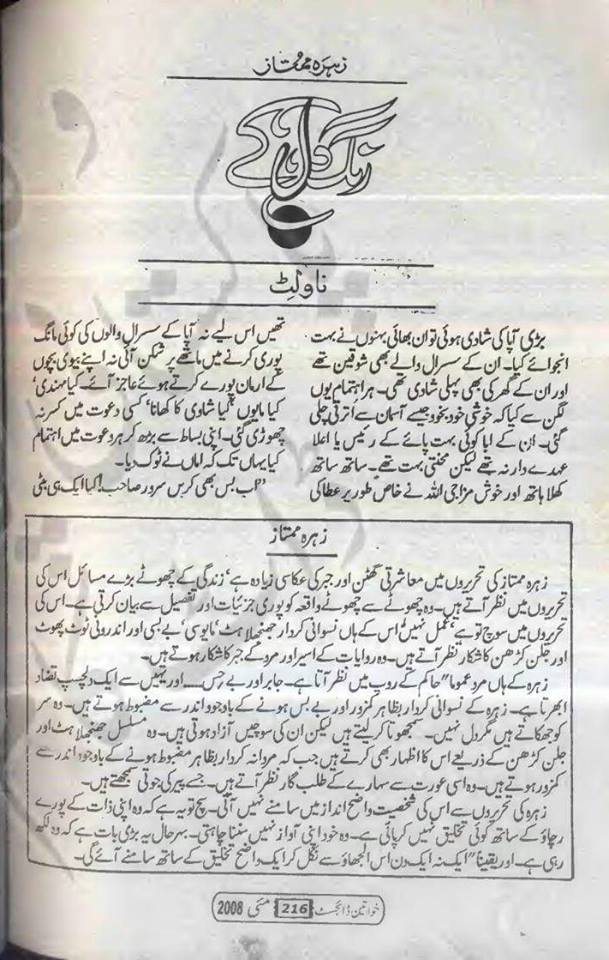 زہرہ ممتاز
رنگ دل کے
ناولٹ
بڑی آپا کی شادی ہوئی تو ان بھائی بہنوں نے بہت
انجوائے کیا۔ ان کے سسرال والے بھی شوقین تھے
اور ان کے گھر کی بھی پہلی شادی تھی۔ ہر اہتمام یوں
لگن سے کیا کہ خوشی خود بخود جیسے آسمان سے اترتی چلی
گئی۔ ان کے ابا کوئی بہت پائے کے رئیس یا اعلا
عہدے دار نہ تھے لیکن محنتی بہت تھے۔ ساتھ ساتھ
کھلا ہاتھ اور خوش مزاجی اللہ نے خاص طور پر عطا کی
تھیں اس لیے نہ آپا کے سسرال والوں کی کوئی مانگ
پوری کرنے میں ماتھے پر شکن آئی نہ اپنے بیوی بچوں
کے ارمان پورے کرتے ہوئے عاجز آئے۔ کیا مہندی‘
کیا مایوں‘ کیا شادی کا کھانا‘ کسی دعوت میں کسر نہ
چھوڑی گئی۔ اپنی بساط سے بڑھ کر ہر دعوت میں اہتمام
کیا یہاں تک کہ اماں نے ٹوک دیا۔
”اب بس بھی کریں سرور صاحب! کیا ایک ہی بیٹی
زہرہ ممتاز
زہرہ ممتاز کی تحریروں میں معاشرتی گھٹن اور جبر کی عکاسی زیادہ ہے‘ زندگی کے چھوٹے بڑے مسائل اس کی
تحریروں میں نظر آتے ہیں۔ وہ چھوٹے سے چھوٹے واقعہ کو پوری جزئیات اور تفصیل سے بیان کرتی ہے۔ اس کی
تحریروں میں سوچ تو ہے‘ عمل نہیں‘ اس کے ہاں نسوانی کردار جھنجلاہٹ‘ مایوسی‘ بے بسی اور اندرونی ٹوٹ پھوٹ
اور جلن کڑھن کا شکار نظر آتے ہیں۔ وہ روایات کے اسیر اور مرد کے جبر کا شکار ہوتے ہیں۔
زہرہ کے ہاں مرد عموما" حاکم کے روپ میں نظر آتا ہے۔ جابر اور بے حس..... اور یہیں سے ایک دلچسپ تضاد
ابھرتا ہے۔ زہرہ کے نسوانی کردار بظاہر کمزور اور بے بس ہونے کے باوجود اندر سے مضبوط ہوتے ہیں۔ وہ سر
کو جھکاتے ہیں مگر دل نہیں۔ سمجھوتا کر لیتے ہیں لیکن ان کی سوچیں آزاد ہوتی ہیں۔ وہ مسلسل جھنجلاہٹ اور
جلن کڑھن کے ذریعے اس کا اظہار بھی کرتے ہیں جب کہ مردانہ کردار بظاہر مضبوط ہونے کے باوجود اندر سے
کمزور ہوتے ہیں۔ وہ اسی عورت سے سہارے کے طلب گار نظر آتے ہیں۔ جسے پیر کی جوتی سمجھتے ہیں۔
زہرہ کی تحریروں سے اس کی شخصیت واضح انداز میں سامنے نہیں آتی۔ سچ تو یہ ہے کہ وہ اپنی ذات کے پورے
رچاؤ کے ساتھ کوئی تخلیق نہیں کر پائی ہے۔ وہ خود اپنی آواز نہیں سننا چاہتی۔ بہرحال یہ بڑی بات ہے کہ وہ لکھ
رہی ہے۔ اور یقینا" ایک نہ ایک دن اس الجھاؤ سے نکل کر ایک واضح تخلیق کے ساتھ سامنے آئے گی۔
خواتین ڈائجسٹ 216 مئی 2008